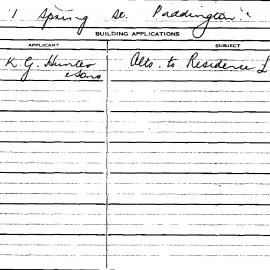 1 Spring St. Paddington
BUILDING APPLICATIONS
APPLICANT SUBJECT
K. G. Hunter Alts. to Residence
& Sons